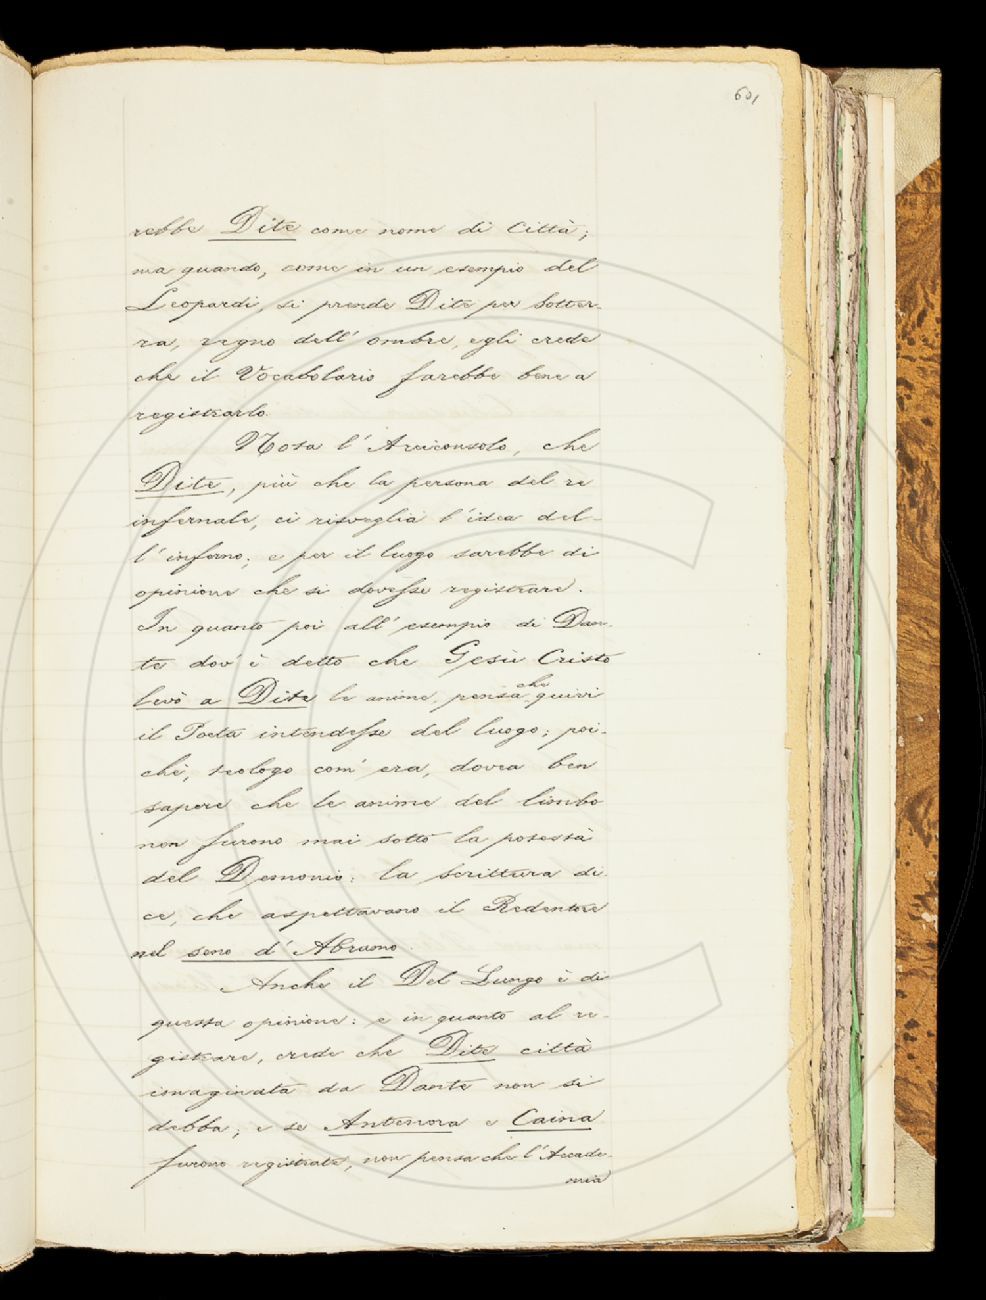 601
rebbe Dite come nome di Città;
ma quando, come in un esempio del
Leopardi, si prende Dite per sotter-
ra, regno dell' ombre, egli crede
che il Vocabolario farebbe bene a
registrarlo.
Nota l' Arciconsolo, che
Dite, più che la persona del re
infernale, ci risveglia l' idea del-
l' inferno; e per il luogo sarebbe di
opinione che si dovesse registrare.
In quanto poi all' esempio di Dan-
te dov' è detto che Gesù Cristo
levò a Dite le anime, pensa che quivi
il Poeta intendesse del luogo; poi-
chè, teologo com' era, dovea ben
sapere che le anime del limbo
non furono mai sotto la potestà
del Demonio: la Scrittura di-
ce, che aspettavano il Redentore
nel seno d' Abramo.
Anche il Del Lungo è di
questa opinione: e in quanto al re-
gistrare, crede che Dite città
imaginata da Dante non si
debba; e se Antenora e Caina
furono registrate, non pensa che l' Accade-
mia